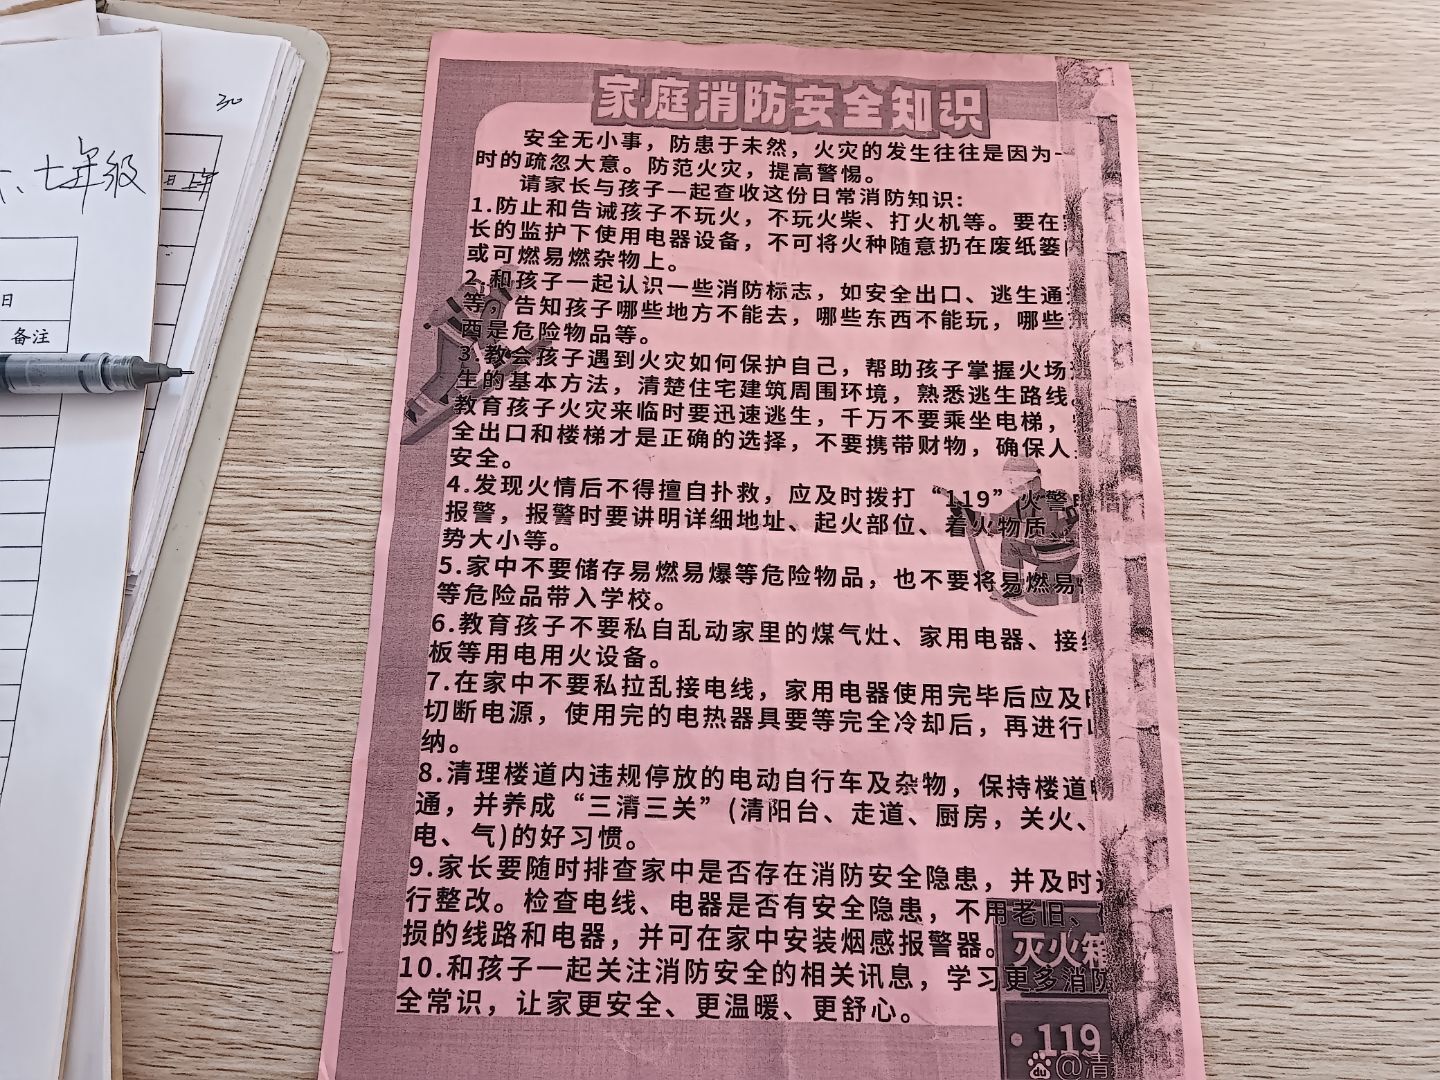 家庭消防安全知识
安全无小事，防患于未然，火灾的发生往往是因为一
时的疏忽大意。防范火灾，提高警惕。
请家长与孩子一起查收这份日常消防知识:
1.防止和告诫孩子不玩火，不玩火柴、打火机等。要在
长的监护下使用电器设备，不可将火种随意扔在废纸篓
或可燃易燃杂物上。
2.和孩子一起认识一些消防标志，如安全出口、逃生通
等，告知孩子哪些地方不能去，哪些东西不能玩，哪些
西是危险物品等。
3.教会孩子遇到火灾如何保护自己，帮助孩子掌握火场
生的基本方法，清楚住宅建筑周围环境，熟悉逃生路线。
教育孩子火灾来临时要迅速逃生，千万不要乘坐电梯，
全出口和楼梯才是正确的选择，不要携带财物，确保人
安全。
4.发现火情后不得擅自扑救，应及时拨打“119”火警
报警，报警时要讲明详细地址、起火部位、着火物质
势大小等。
5.家中不要储存易燃易爆等危险物品，也不要将易燃易
等危险品带入学校。
6.教育孩子不要私自乱动家里的煤气灶、家用电器、接
板等用电用火设备。
7.在家中不要私拉乱接电线，家用电器使用完毕后应及
切断电源，使用完的电热器具要等完全冷却后，再进行
纳。
8.清理楼道内违规停放的电动自行车及杂物，保持楼道
通，并养成“三清三关”(清阳台、走道、厨房，关火、
电、气)的好习惯。
9.家长要随时排查家中是否存在消防安全隐患，并及时
行整改。检查电线、电器是否有安全隐患，不用老旧、
损的线路和电器，并可在家中安装烟感报警器。
10.和孩子一起关注消防安全的相关讯息，学习更多消防
全常识，让家更安全、更温暖、更舒心。
灭火箱
119
du @清
30
、七年级
日
备注